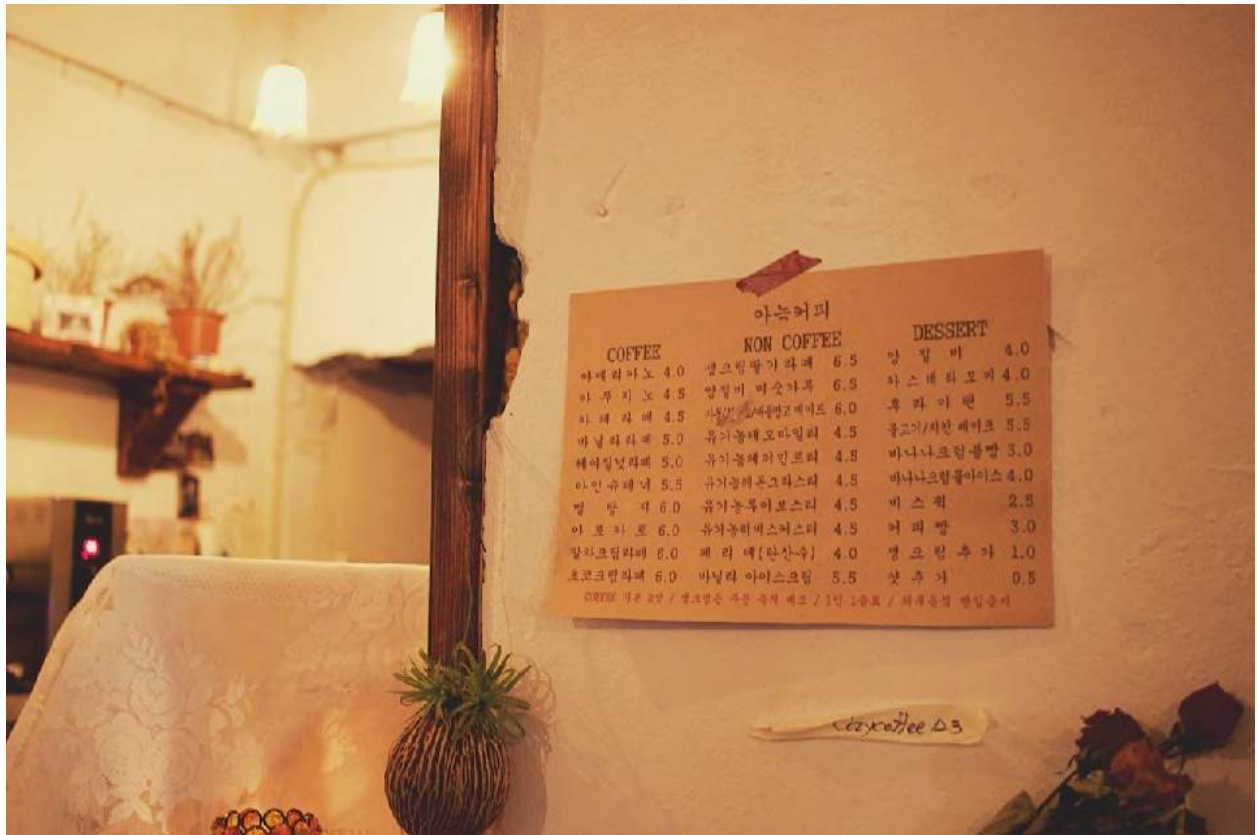 아늑커피
COFFEE
아메리카노 4.0
카푸치노 4.5
카페라떼 4.5
바닐라라떼 5.0
헤이즐넛라떼 5.0
아인슈페너 5.5
멜랑지 6.0
아포카토 6.0
말차크림라떼 6.0
초코크림라떼 6.0
NON COFFEE
생크림딸기라떼 6.5
양갱비 미숫가루 6.5
6.0
유기농캐모마일티 4.5
유기농페퍼민트티 4.5
유기농레몬그라스티 4.5
유기농루이보스티 4.5
유기농히비스커스티 4.5
페리에(탄산수) 4.0
바닐라 아이스크림 5.5
DESSERT
4.0
카스테라모찌 4.0
후라이팬 5.5
불고기/치킨 베이크 5.5
바나나크림볼빵 3.0
바나나크림볼아이스 4.0
비스퀵 2.5
커피빵 3.0
생크림추가 1.0
샷추가 0.5
COFFEE 기본 2샷 / 생크림은 주문 즉시 제조 / 1인 1음료 / 외부음식 반입금지